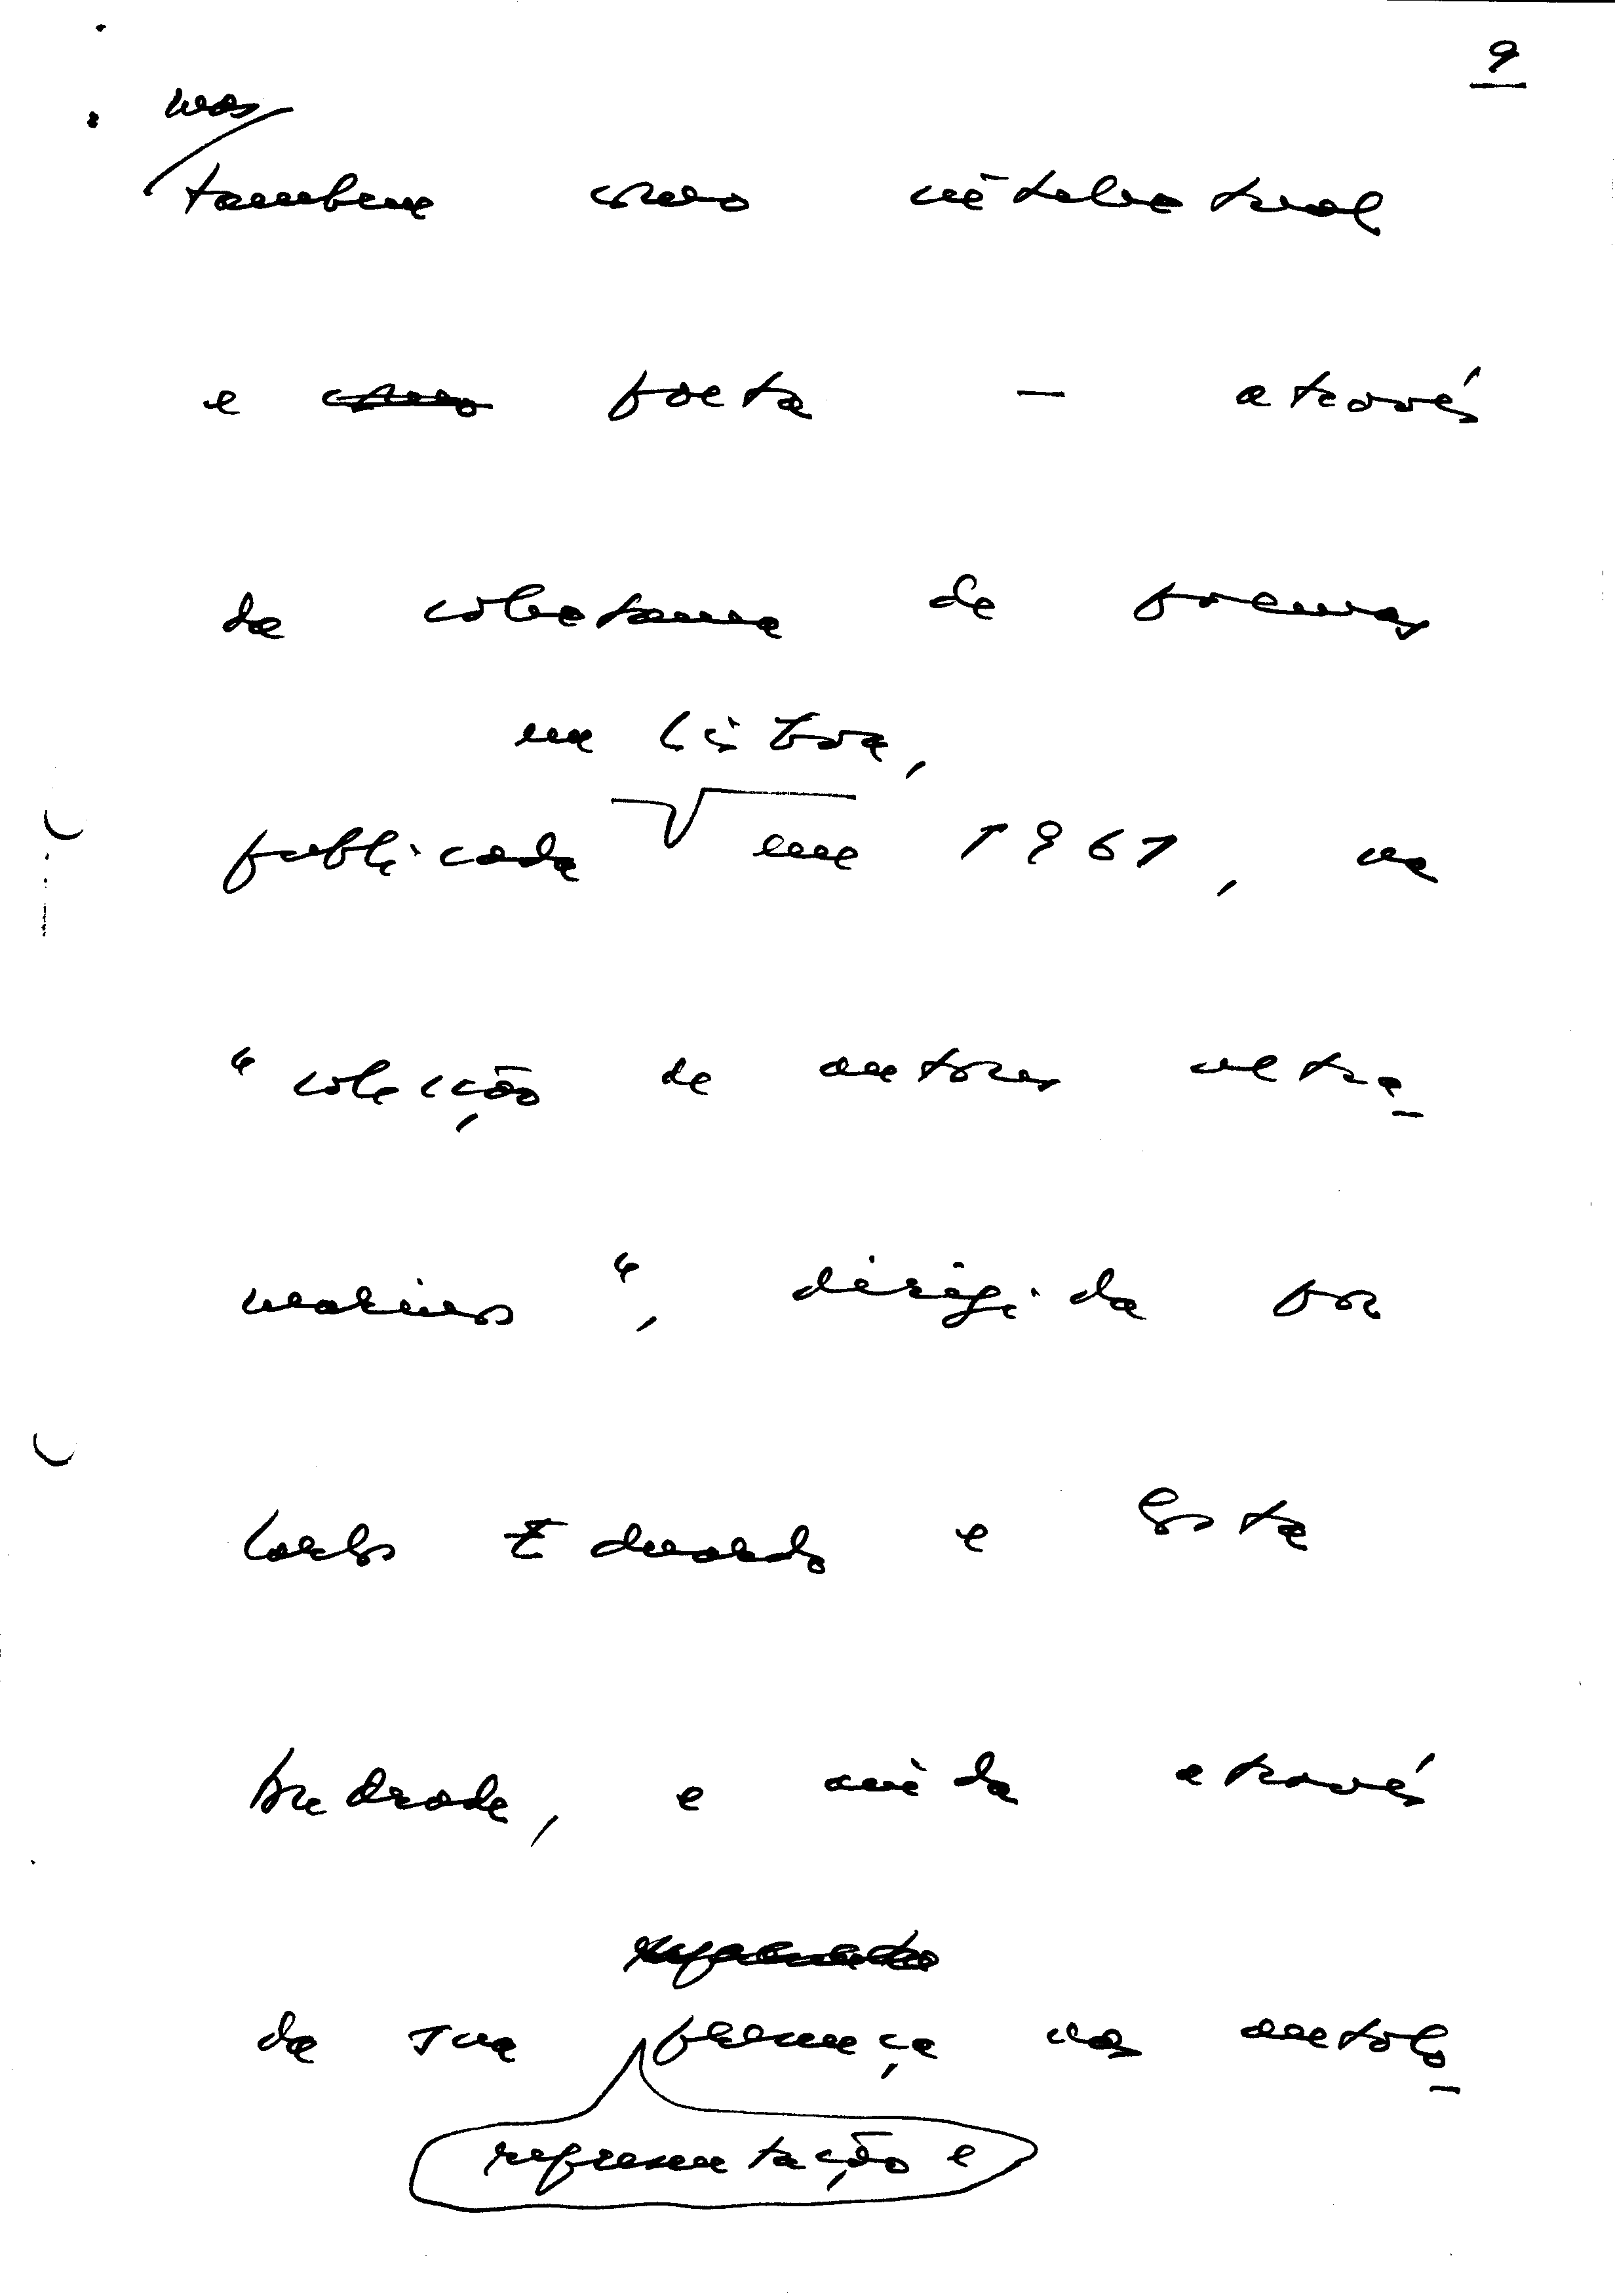 9
mas
tambem como intelectual
e como poeta – através
da coletanea de poemas
em Lisboa,
publicada em 1961, na
"coleção de autores ultra-
marinos", dirigida por
Carlos Eduardo e Costa
Andrade, e ainda através
da sua presença nas antolo-
representação e